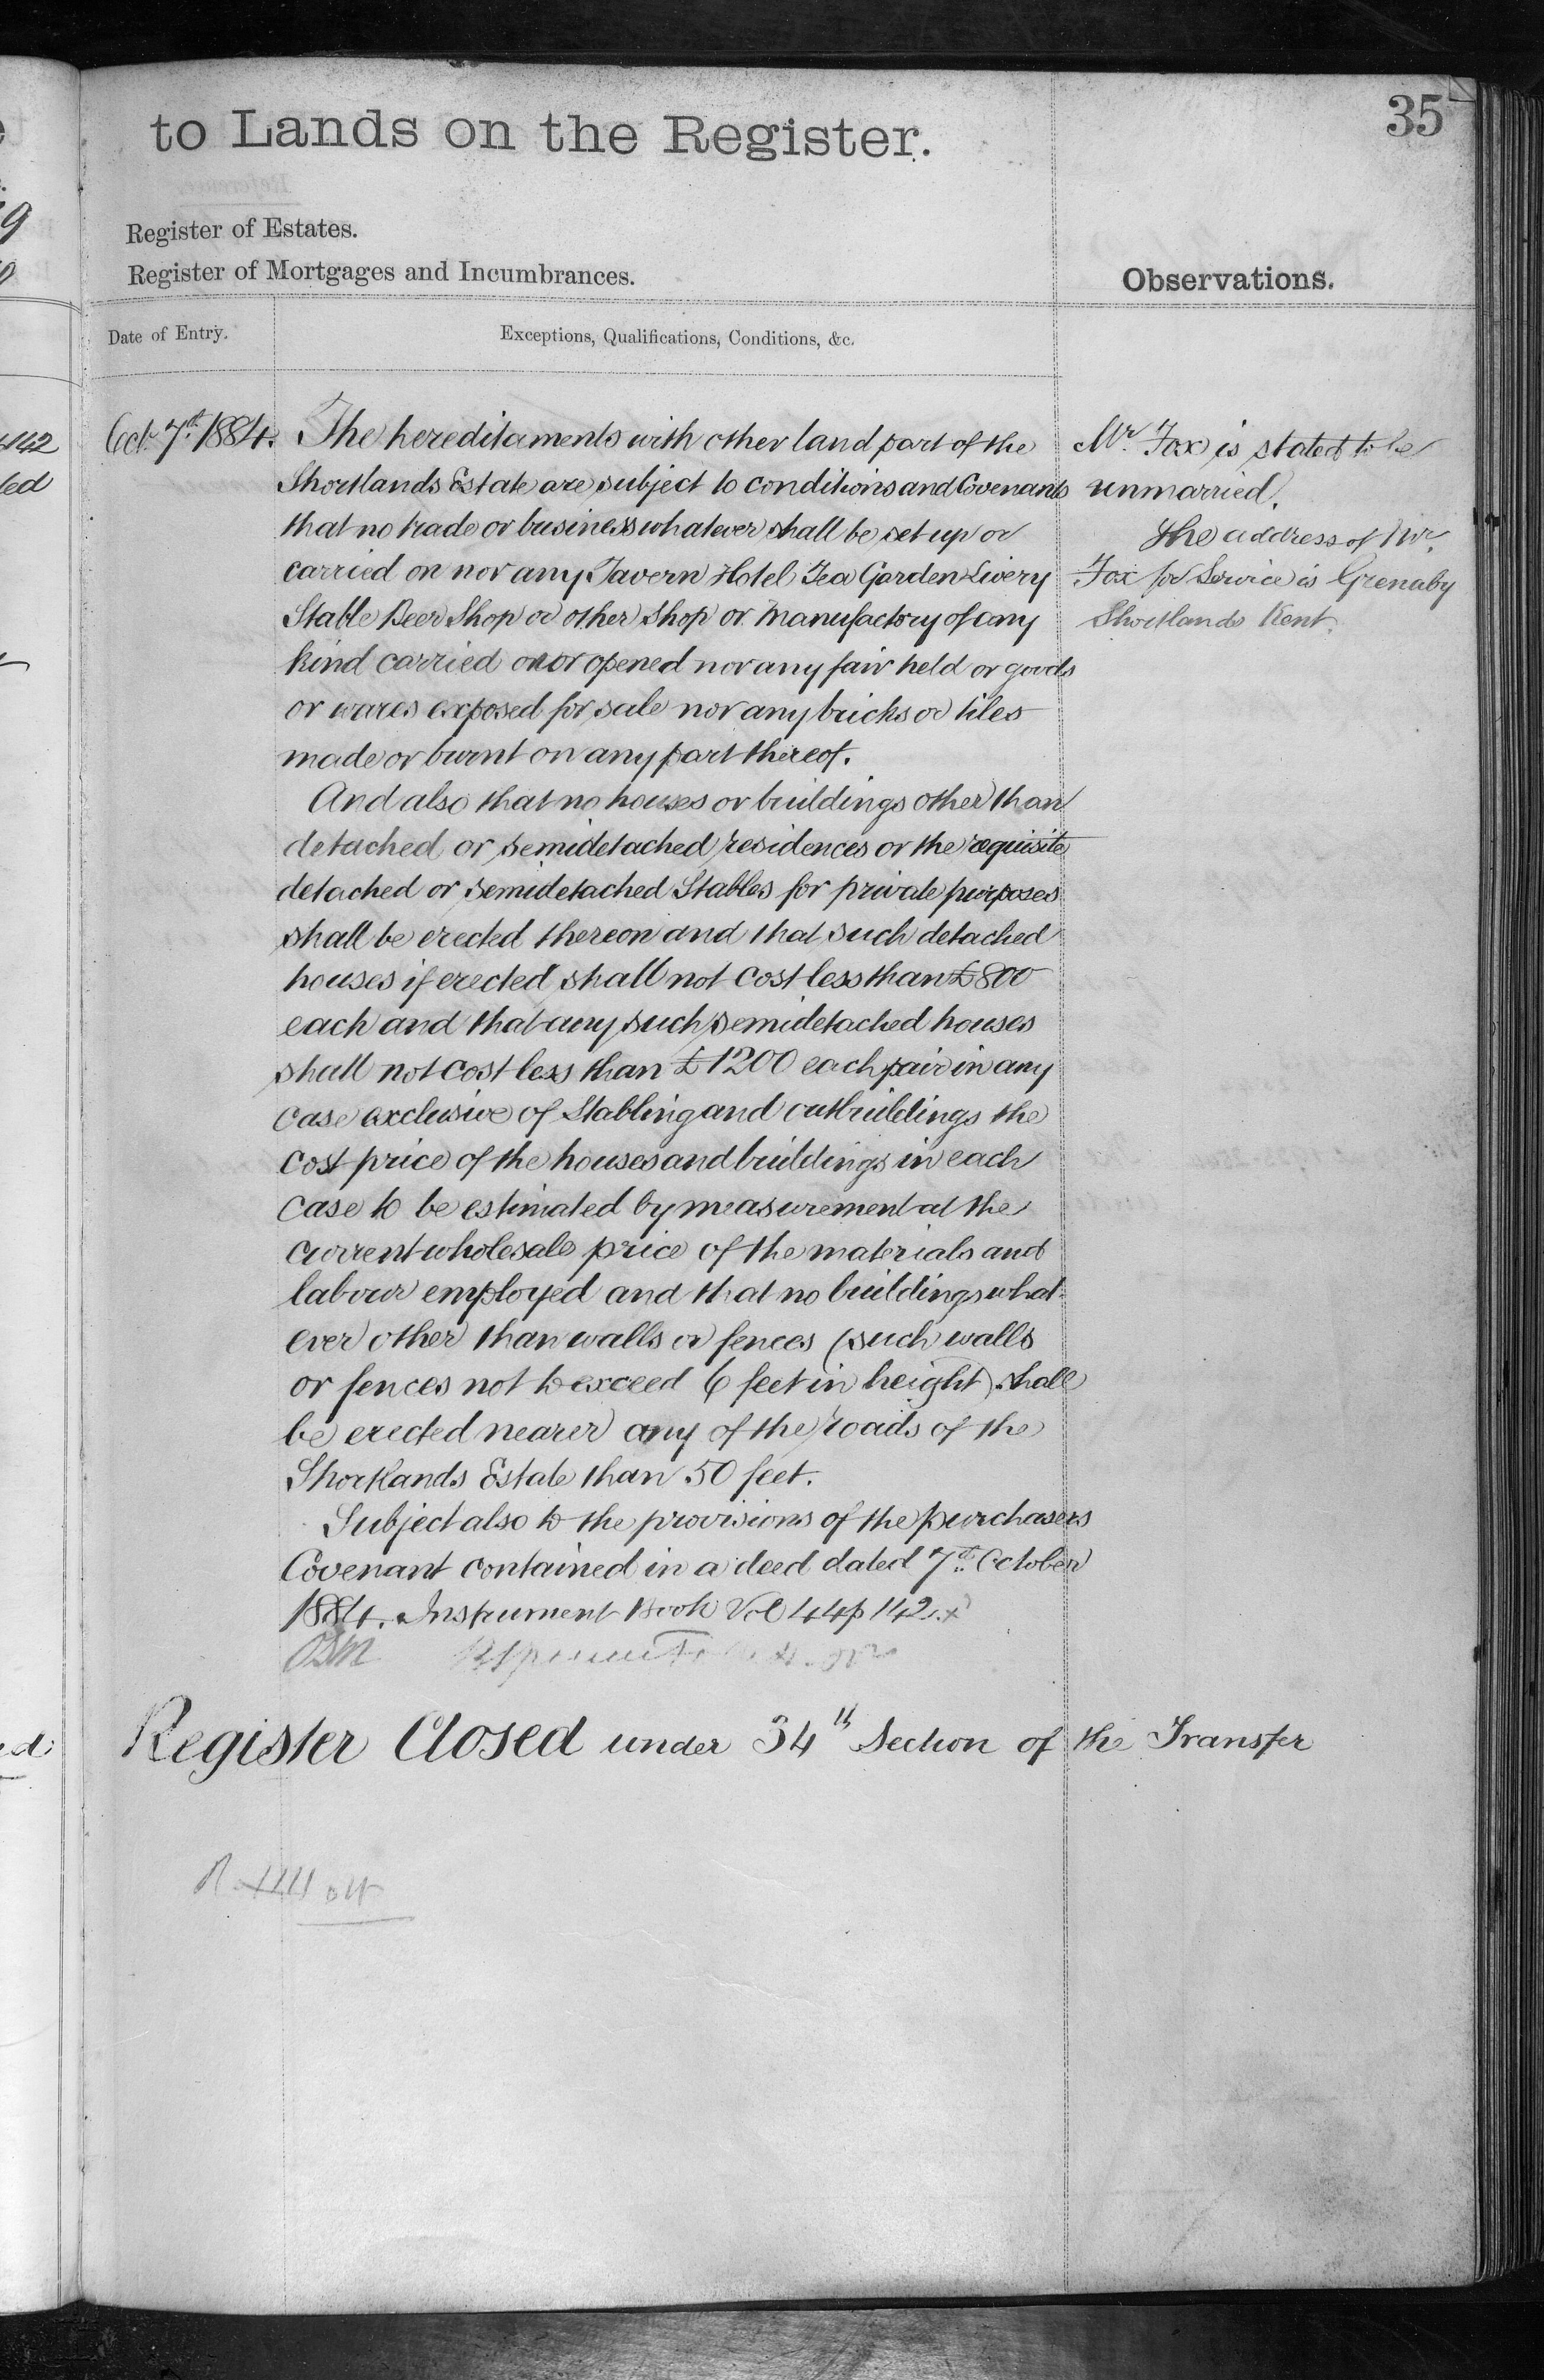 35
to Lands on the Register.
Register of Estates.
Register of Mortgages and Incumbrances.
Observations.
Date of Entry.
Exceptions, Qualifications, Conditions, &c.
Oct. 7th 1884.
The hereditaments with other land part of the
Shortlands Estate are subject to conditions and Covenants
that no trade or business whatever shall be set up or
carried on nor any Tavern Hotel Tea Garden Livery
Stable Beer Shop or other Shop or Manufactory of any
kind carried on or opened nor any fair held or goods
or wares exposed for sale nor any bricks or tiles
made or burnt on any part thereof.
And also that no houses or buildings other than
detached or semidetached residences or the requisite
detached or semidetached Stables for private purposes
shall be erected thereon and that such detached
houses if erected shall not cost less than £800
each and that any such semidetached houses
shall not cost less than £1200 each pair in any
case exclusive of Stabling and outbuildings the
cost price of the houses and buildings in each
case to be estimated by measurement at the
current wholesale price of the materials and
labour employed and that no buildings what-
ever other than walls or fences (such walls
or fences not to exceed 6 feet in height) shall
be erected nearer any of the roads of the
Shortlands Estate than 50 feet.
Subject also to the provisions of the purchasers
Covenant contained in a deed dated 7th October
1884. Instrument Book Vol 44 p 142.
Mr. Fox is stated to be
unmarried.
The address of Mr.
Fox for Service is Grenaby
Shortlands Kent.
Register Closed under 34th Section of the Transfer
142